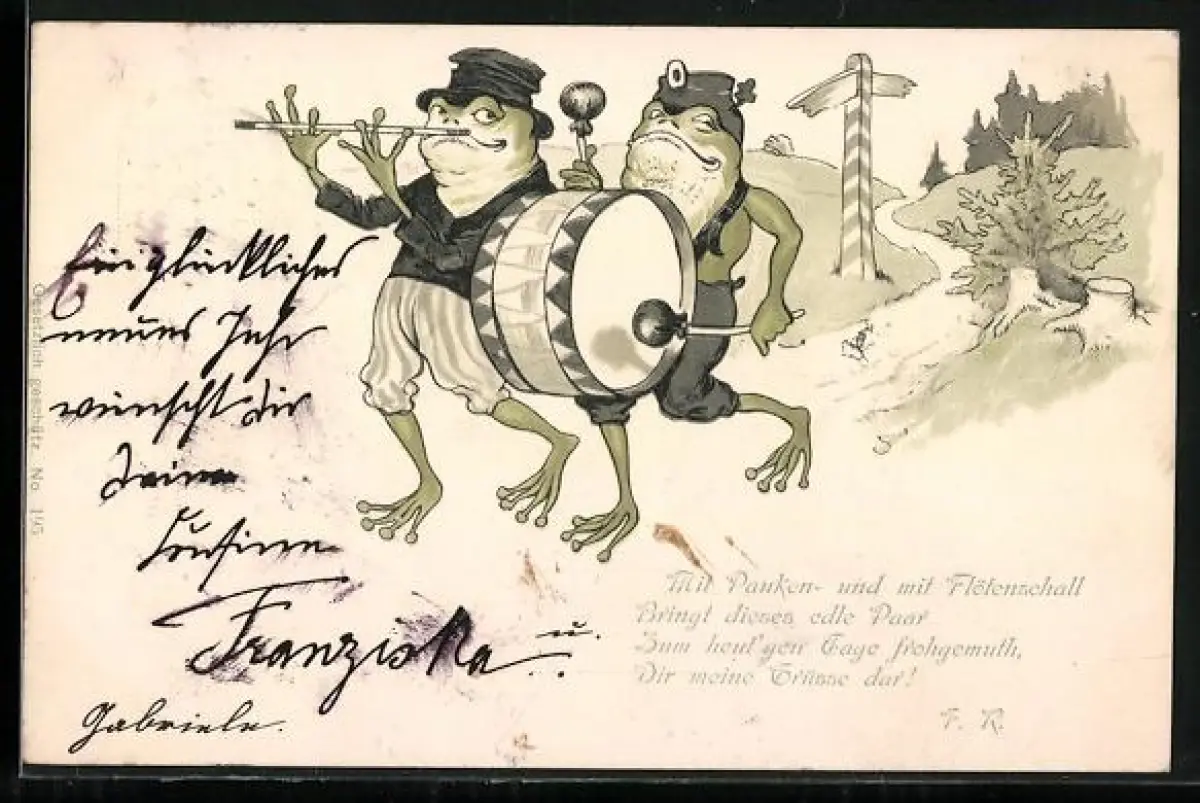 Ein glückliches
neues Jahr
wünscht dir
deine
Cousine
Franziska u.
Gabriele.
Mit Pauken- und mit Flötenschall
Bringt dieses edle Paar
Zum heut'gen Tage frohgemuth,
Dir meine Grüsse dar!
F. R.
Gesetzlich geschützt No. 195